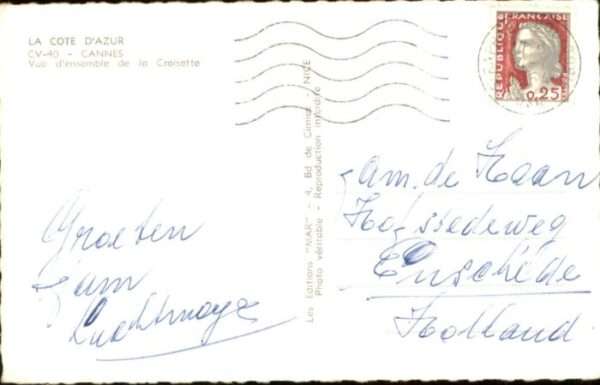 LA COTE D'AZUR
CV-40 - CANNES
Vue d'ensemble de la Croisette
Groeten
fam
Les Editions "MAR" - 4, Bd de Cimiez - NICE
Photo véritable - Reproduction interdite
REPUBLIQUE FRANÇAISE
0,25
fam. de Haan
Enschede
Holland